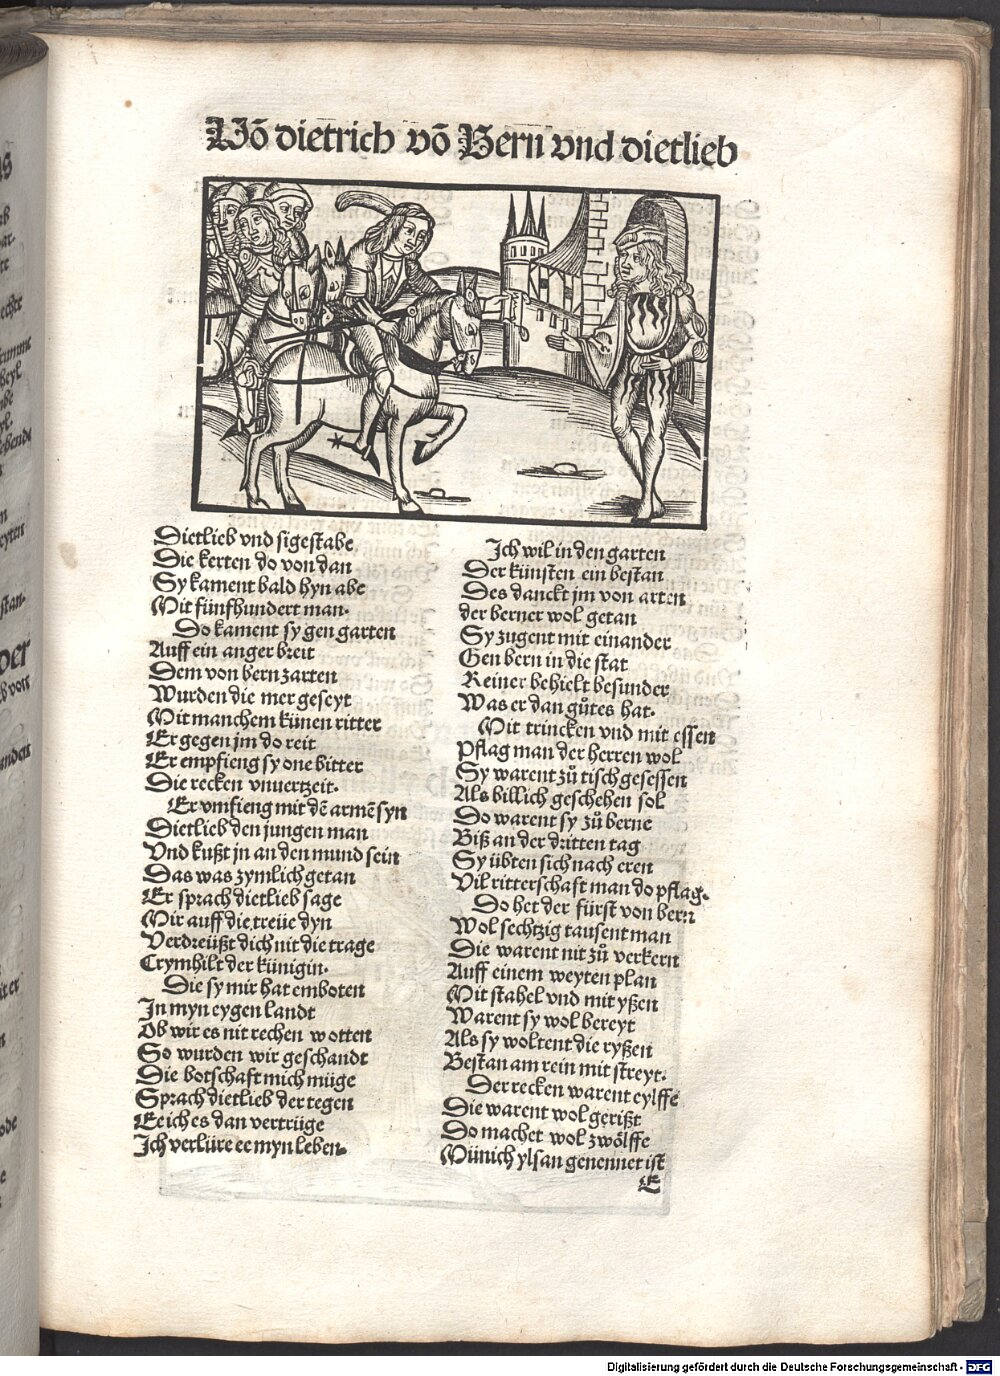 Uõ dietrich võ Bern vnd dietlieb
Dietlieb vnd sigestabe
Die kerten do von dan
Sy kament bald hyn abe
Mit fünfhundert man.
Do kament sy gen garten
Auff ein anger breit
Dem von bern zarten
Wurden die mer geseyt
Mit manchem künen ritter
Er gegen jm do reit
Er empfieng sy one bitter
Die recken vnuertzeit.
Er vmfieng mit dē armē syn
Dietlieb den jungen man
Vnd kußt jn an den mund sein
Das was zymlich getan
Er sprach dietlieb sage
Mir auff die treüe dyn
Verdreüßt dich nit die trage
Crymhilt der künigin.
Die sy mir hat emboten
In myn eygen landt
Ob wir es nit rechen wotten
So wurden wir geschandt
Die botschaft mich müge
Sprach dietlieb der tegen
Ee ich es dan vertrüge
Ich verlüre ee myn leben.
Ich wil in den garten
Der künsten ein bestan
Des danckt jm von arten
der berner wol getan
Sy zugent mit einander
Gen bern in die stat
Reiner behielt besunder
Was er dan gůtes hat.
Mit trincken vnd mit essen
Pflag man der herren wol
Sy warent zů tisch gesessen
Als billich geschehen sol
Do warent sy zů berne
Biß an der dritten tag
Sy übten sich nach eren
Vil ritterschaft man do pflag.
Do het der fürst von bern
Wol sechtzig tausent man
Die warent nit zů verkern
Auff einem weyten plan
Mit stahel vnd mit yßen
Warent sy wol bereyt
Als sy woltent die ryßen
Bestan am rein mit streyt.
Der recken warent eylffe
Die warent wol gerißt
Do machet wol zwölffe
Münich ylsan genennet ist
E
Digitalisierung gefördert durch die Deutsche Forschungsgemeinschaft - DFG